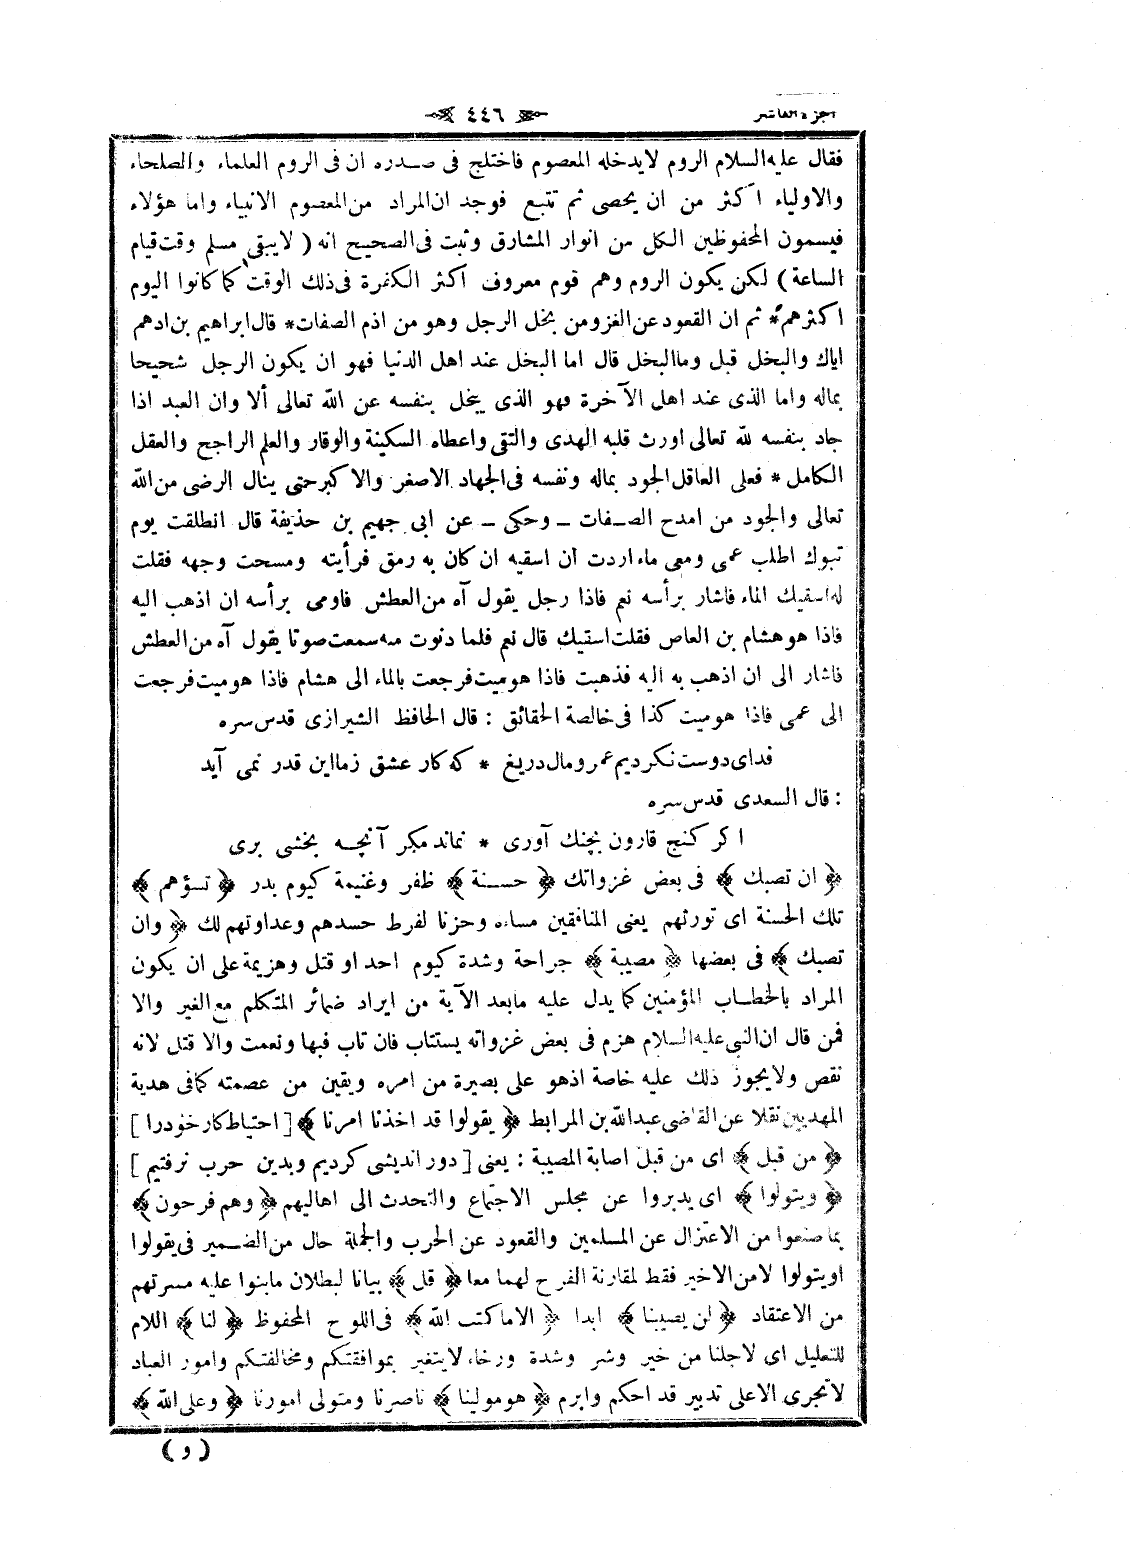 الجزء العاشر
٤٤٦
فقال عليه السلام الروم لايدخله المعصوم فاختلج فى صدره ان فى الروم العلماء والصلحاء
والاولياء اكثر من ان يحصى ثم تتبع فوجد ان المراد من المعصوم الانبياء واما هؤلاء
فيسمون المحفوظين الكل من انوار المشارق وثبت فى الصحيح انه ( لايبقى مسلم وقت قيام
الساعة ) لكن يكون الروم وهم قوم معروف اكثر الكفرة فى ذلك الوقت كما كانوا اليوم
اكثرهم * ثم ان القعود عن الغزو من بخل الرجل وهو من اذم الصفات * قال ابراهيم بن ادهم
اياك والبخل قيل وما البخل قال اما البخل عند اهل الدنيا فهو ان يكون الرجل شحيحا
بماله واما الذى عند اهل الآخرة فهو الذى يبخل بنفسه عن الله تعالى ألا وان العبد اذا
جاد بنفسه لله تعالى اورث قلبه الهدى والتقى واعطاه السكينة والوقار والعلم الراجح والعقل
الكامل * فعلى العاقل الجود بماله ونفسه فى الجهاد الاصغر والاكبر حتى ينال الرضى من الله
تعالى والجود من امدح الصفات ـ وحكى ـ عن ابى جهيم بن حذيفة قال انطلقت يوم
تبوك اطلب عمى ومعى ماء اردت ان اسقيه ان كان به رمق فرأيته ومسحت وجهه فقلت
له اسقيك الماء فاشار برأسه نعم فاذا رجل يقول آه من العطش فاومى برأسه ان اذهب اليه
فاذا هو هشام بن العاص فقلت اسقيك قال نعم فلما دنوت منه سمعت صوتا يقول آه من العطش
فاشار الى ان اذهب به اليه فذهبت فاذا هو ميت فرجعت بالماء الى هشام فاذا هو ميت فرجعت
الى عمى فاذا هو ميت كذا فى خالصة الحقائق : قال الحافظ الشيرازى قدس سره
فداى دوست نكرديم عمر ومال دريغ * كه كار عشق زما اين قدر نمى آيد
: قال السعدى قدس سره
اكر كنج قارون بچنك آورى * نماند مكر آنچه بخشى برى
﴿ ان تصبك ﴾ فى بعض غزواتك ﴿ حسنة ﴾ ظفر وغنيمة كيوم بدر ﴿ تسؤهم ﴾
تلك الحسنة اى تورثهم يعنى المنافقين مساءة وحزنا لفرط حسدهم وعداوتهم لك ﴿ وان
تصبك ﴾ فى بعضها ﴿ مصيبة ﴾ جراحة وشدة كيوم احد او قتل وهزيمة على ان يكون
المراد بالخطاب المؤمنين كما يدل عليه مابعد الآية من ايراد ضمائر المتكلم مع الغير والا
فمن قال ان النبى عليه السلام هزم فى بعض غزواته يستتاب فان تاب فبها ونعمت والا قتل لانه
نقص ولايجوز ذلك عليه خاصة اذهو على بصيرة من امره ويقين من عصمته كما فى هدية
المهديين نقلا عن القاضى عبدالله بن المرابط ﴿ يقولوا قد اخذنا امرنا ﴾ [ احتياط كار خودرا ]
﴿ من قبل ﴾ اى من قبل اصابة المصيبة : يعنى [ دور انديشى كرديم وبدين حرب نرفتيم ]
﴿ ويتولوا ﴾ اى يدبروا عن مجلس الاجتماع والتحدث الى اهاليهم ﴿ وهم فرحون ﴾
بما صنعوا من الاعتزال عن المسلمين والقعود عن الحرب والجملة حال من الضمير فى يقولوا
اويتولوا لا من الاخير فقط لمقارنة الفرح لهما معا ﴿ قل ﴾ بيانا لبطلان مابنوا عليه مسرتهم
من الاعتقاد ﴿ لن يصيبنا ﴾ ابدا ﴿ الا ما كتب الله ﴾ فى اللوح المحفوظ ﴿ لنا ﴾ اللام
للتعليل اى لاجلنا من خير وشر وشدة ورخاء لايتغير بموافقتكم ومخالفتكم وامور العباد
لاتجرى الاعلى تدبير قد احكم وابرم ﴿ هو مولينا ﴾ ناصرنا ومتولى امورنا ﴿ وعلى الله ﴾
( و )